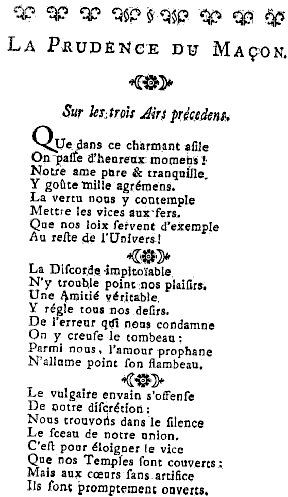 LA PRUDENCE DU MAÇON.
Sur les trois Airs précedens.
Que dans ce charmant asile
On passe d'heureux momens!
Notre ame pure & tranquille,
Y goûte mille agrémens.
La vertu nous y contemple
Mettre les vices aux fers.
Que nos loix servent d'exemple
Au reste de l'Univers!
La Discorde impitoïable
N'y trouble point nos plaisirs.
Une Amitié véritable
Y régle tous nos desirs.
De l'erreur qui nous condamne
On y creuse le tombeau:
Parmi nous, l'amour prophane
N'allume point son flambeau.
Le vulgaire envain s'offense
De notre discrétion:
Nous trouvons dans le silence
Le sceau de notre union.
C'est pour éloigner le vice
Que nos Temples sont couverts:
Mais aux cœurs sans artifice
Ils sont promptement ouverts.